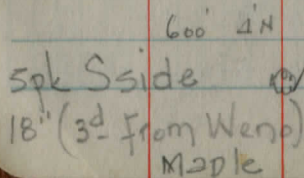 600' 1'N
5pk Sside
18" (3d From Wend)
Maple